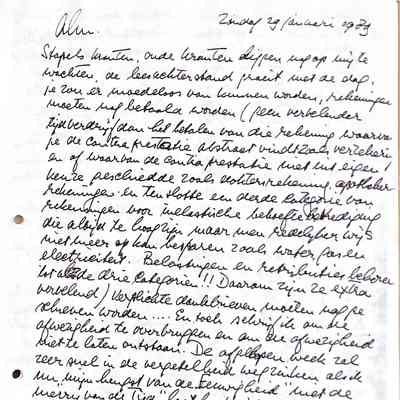 Zondag 29 januari 1989
Alm.
Stapels kranten, oude kranten liggen nog op mij te
wachten, de leesachterstand groeit met de dag,
je zou er moedeloos van kunnen worden, rekeningen
moeten nog betaald worden (geen vervelender
tijdverdrijf dan het betalen van die rekening waarvan
je de contraprestatie abstract vindt zoals verzekering
en of waarvan de contraprestatie niet uit eigen
keuze geschiedde zoals doktersrekening, apotheker
rekeningen en tenslotte een derde categorie van
rekeningen voor inelastische behoeftebevrediging
die altijd te hoog zijn maar men redelijkerwijs
niet meer op kan besparen zoals water gas en
electriciteit. Belastingen en retributies behoren
tot alle drie categorieën!! Daarom zijn ze extra
vervelend) Verplichte dankbrieven moeten nog ge
schreven worden.... En toch schrijf ik om de
afwezigheid te overbruggen en om die afwezigheid
niet te laten ontstaan. De afgelopen week zal
zeer snel in de vergetelheid wegzinken als ik
nu "mijn hengst van de eeuwigheid" niet de
merrie van de Tijd"